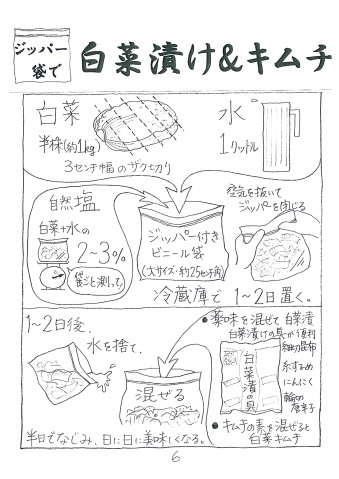 ジッパー袋で
白菜漬け&キムチ
白菜
半株(約1kg)
3センチ幅のザク切り
水
1リットル
自然塩
白菜+水の
2~3%
袋ごと測って
ジッパー付き
ビニール袋
(大サイズ・約25センチ角)
空気を抜いて
ジッパーを閉じる
冷蔵庫で1~2日置く。
1~2日後、
水を捨て、
混ぜる
半日でなじみ、日に日に美味しくなる。
●薬味を混ぜて白菜漬
白菜漬けの具が便利
白菜漬の具
細切昆布
糸するめ
にんにく
輪切
唐辛子
●キムチの素を混ぜると
白菜キムチ
6